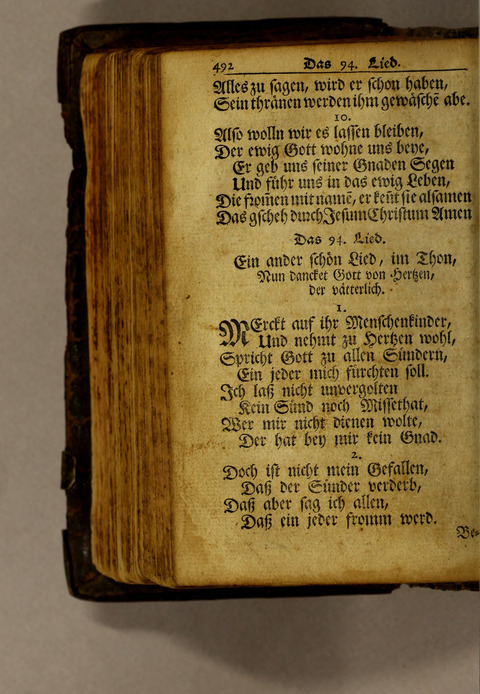 492 Das 94. Lied.
Alles zu sagen, wird er schon haben,
Sein thränen werden ihm gewäschẽ abe.
10.
Also wolln wir es lassen bleiben,
Der ewig Gott wohne uns beye,
Er geb uns seiner Gnaden Segen
Und führ uns in das ewig Leben,
Die from̃en mit namẽ, er keñt sie alsamen
Das gscheh durch Jesum Christum Amen
Das 94. Lied.
Ein ander schön Lied, im Thon,
Nun dancket Gott von Hertzen,
der vätterlich.
1.
MErckt auf ihr Menschenkinder,
Und nehmt zu Hertzen wohl,
Spricht Gott zu allen Sündern,
Ein jeder mich fürchten soll.
Ich laß nicht unvergolten
Kein Sünd noch Missethat,
Wer mir nicht dienen wolte,
Der hat bey mir kein Gnad.
2.
Doch ist nicht mein Gefallen,
Daß der Sünder verderb,
Daß aber sag ich allen,
Daß ein jeder fromm werd.
Be-